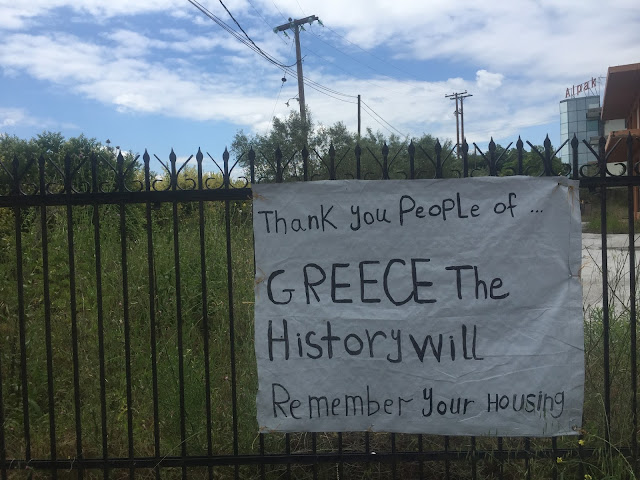 Alpak
Thank you People of ...
GREECE The
History will
Remember your Housing